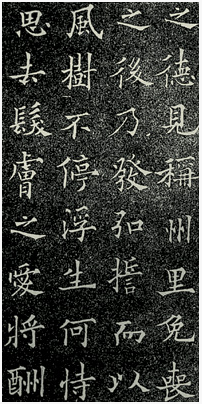 之德見稱州里免喪
之後乃發弘誓而以
風樹不停浮生何恃
思去髮膚之愛將酬